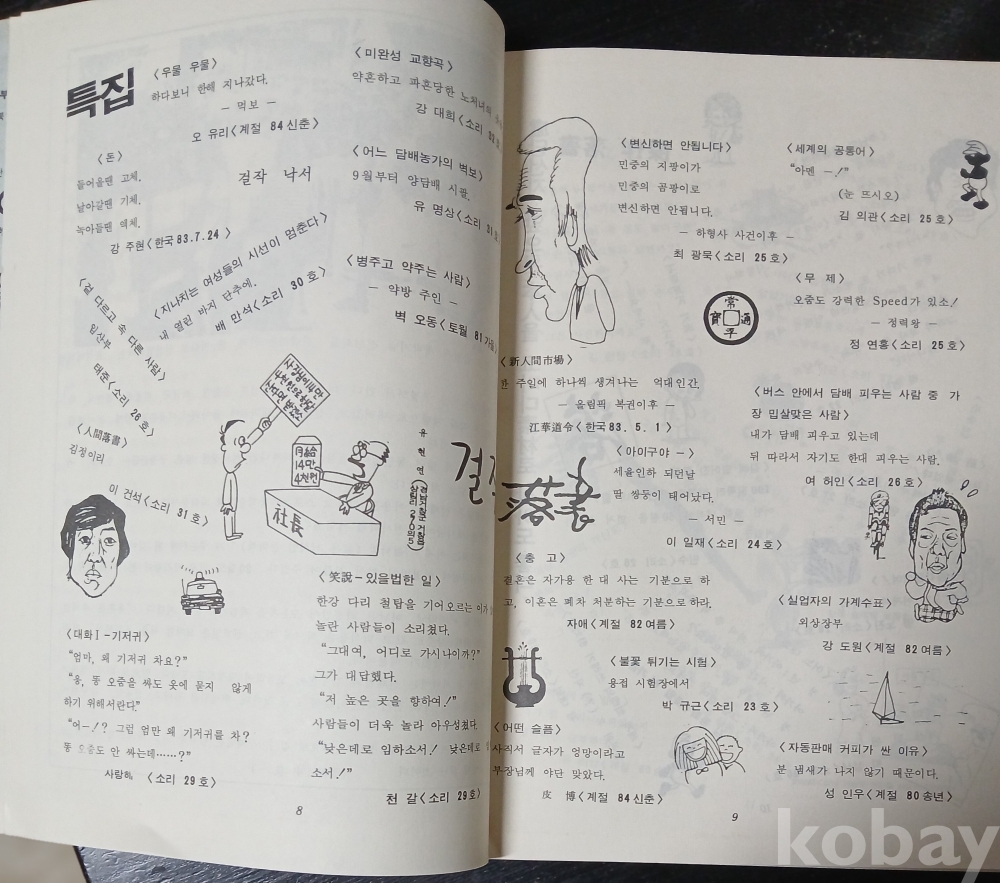 특집
〈우물 우물〉
하다보니 한해 지나갔다.
— 먹보 —
오 유리〈계절 84신춘〉
〈미완성 교향곡〉
약혼하고 파혼당한 노처녀의
강 대희〈소리
〈돈〉
들어올땐 고체.
날아갈땐 기체.
녹아들땐 액체.
강 주현〈한국83.7.24〉
걸작 낙서
〈어느 담배농가의 벽보〉
9월부터 양담배 시판.
유 명상〈소리 31호
〈지나치는 여성들의 시선이 멈춘다〉
내 열린 바지 단추에.
배 만석〈소리 30호〉
〈병주고 약주는 사람〉
— 약방 주인 —
벽 오동〈토월 81가을
〈겉 다르고 속 다른 사람〉
임산부
태준〈소리 26호〉
〈人間落書〉
김정이리
이 건석〈소리 31호〉
사장님이 14만
4천원으로 한달
산다면 믿겠소
月給
14만
4천원
社長
유현연
〈대화Ⅰ-기저귀〉
“엄마, 왜 기저귀 차요?”
“응, 똥 오줌을 싸도 옷에 묻지 않게
하기 위해서란다.”
“어—!? 그럼 엄만 왜 기저귀를 차?
똥 오줌도 안 싸는데……?”
사람해, 〈소리 29호〉
〈笑說-있을법한 일〉
한강 다리 철탑을 기어오르는 이가
놀란 사람들이 소리쳤다.
“그대여, 어디로 가시나이까?”
그가 대답했다.
“저 높은 곳을 향하여!”
사람들이 더욱 놀라 아우성쳤다.
“낮은데로 임하소서! 낮은데로
소서!”
천 갈〈소리 29호〉
8
〈변신하면 안됩니다〉
민중의 지팡이가
민중의 곰팡이로
변신하면 안됩니다.
— 하형사 사건이후 —
최 광묵〈소리 25호〉
〈세계의 공통어〉
“아멘 —!”
(눈 뜨시오)
김 의관〈소리 25호〉
〈무 제〉
오줌도 강력한 Speed가 있소!
— 정력왕 —
정 연홍〈소리 25호〉
常
寶 通
平
〈新人間市場〉
한 주일에 하나씩 생겨나는 억대인간.
— 올림픽 복권이후 —
江華道令〈한국83.5.1〉
〈버스 안에서 담배 피우는 사람 중 가
장 밉살맞은 사람〉
내가 담배 피우고 있는데
뒤 따라서 자기도 한대 피우는 사람.
여 허인〈소리 26호〉
걸작
落書
〈아이구야 -〉
세율인하 되던날
딸 쌍둥이 태어났다.
— 서민 —
이 일재〈소리 24호〉
〈충 고〉
결혼은 자가용 한 대 사는 기분으로 하
고, 이혼은 폐차 처분하는 기분으로하라.
자애〈계절 82여름〉
〈실업자의 가계수표〉
외상장부
강 도원〈계절 82여름〉
〈불꽃 튀기는 시험〉
용접 시험장에서
박 규근〈소리 23호〉
〈어떤 슬픔〉
사직서 글자가 엉망이라고
부장님께 야단 맞았다.
皮 博〈계절 84신춘〉
〈자동판매 커피가 싼 이유〉
분 냄새가 나지 않기 때문이다.
성 인우〈계절 80송년〉
9
kobay